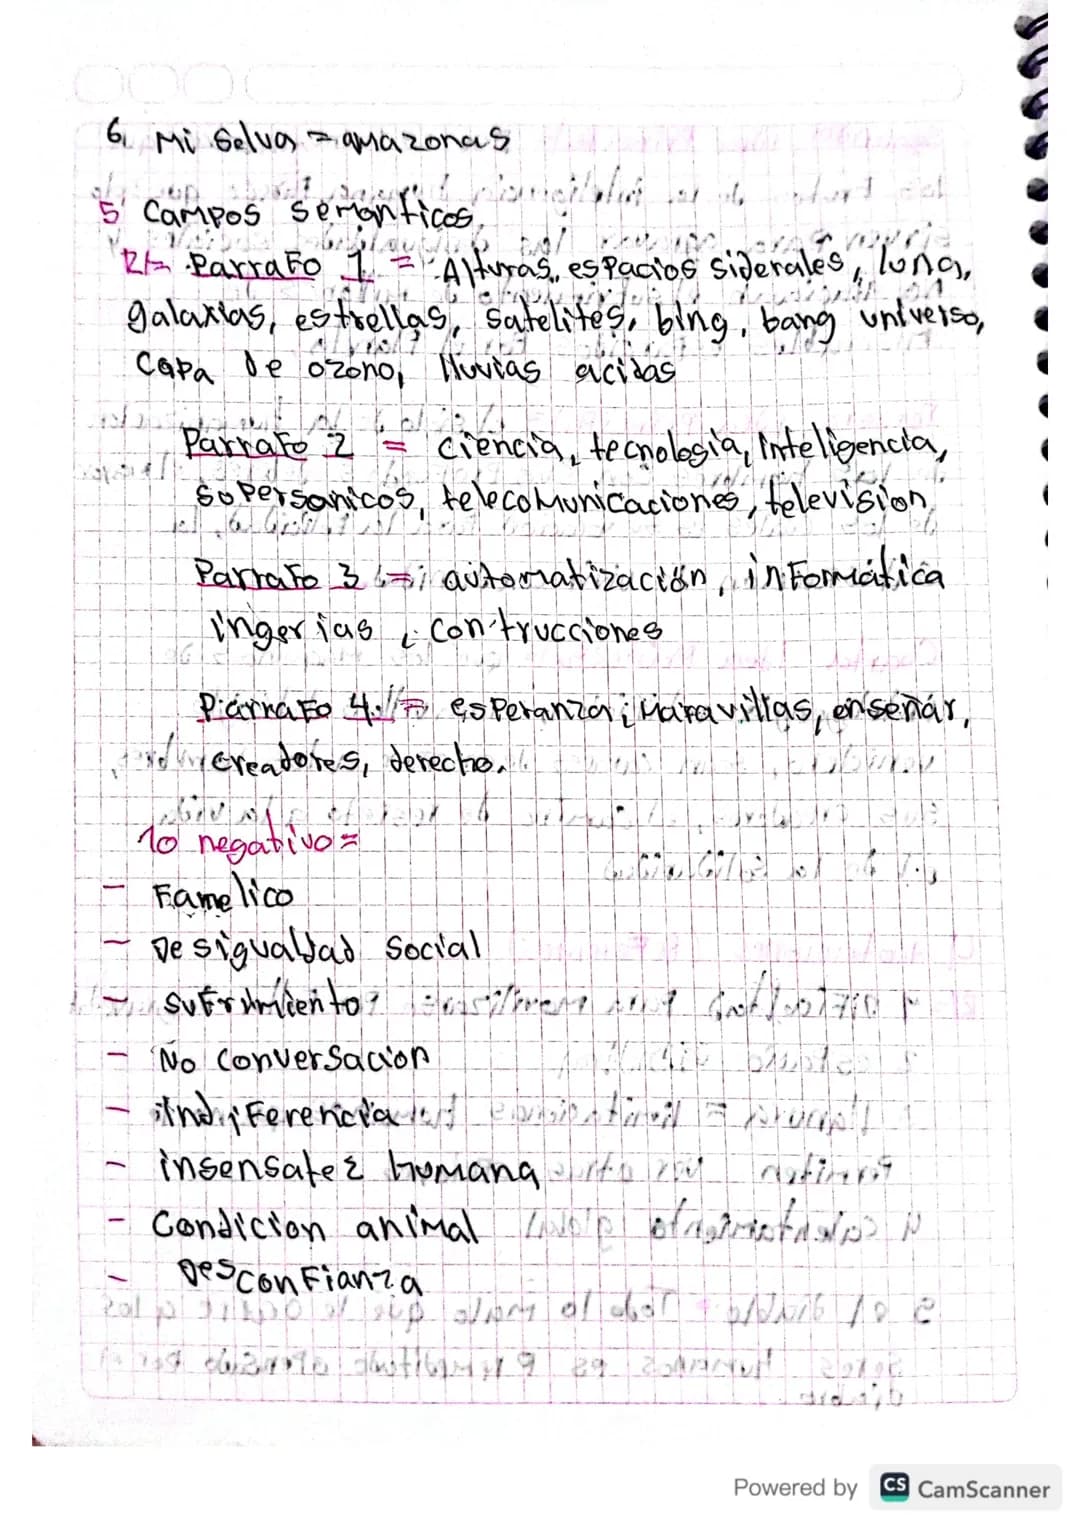 6. Mi Selva = amazonas
5 Campos semanticos
R/= Parrafo 1 = Alturas, espacios siderales, luna,
galaxias, estrellas, satelites, bing, bang universo,
Capa de ozono, lluvias acidas
Parrafo 2 = ciencia, tecnologia, inteligencia,
supersonicos, telecomunicaciones, television
Parrafo 3 = automatización, informática
ingerias, contrucciones
Parrafo 4 = esperanza, Maravillas, enseñar,
creadores, derecho.
lo negativo =
- Famelico
- Desigualdad Social
- Sufrimiento
- No conversacion
- indiferencia
- insensatez humana
- Condicion animal
- Desconfianza
Powered by CS CamScanner